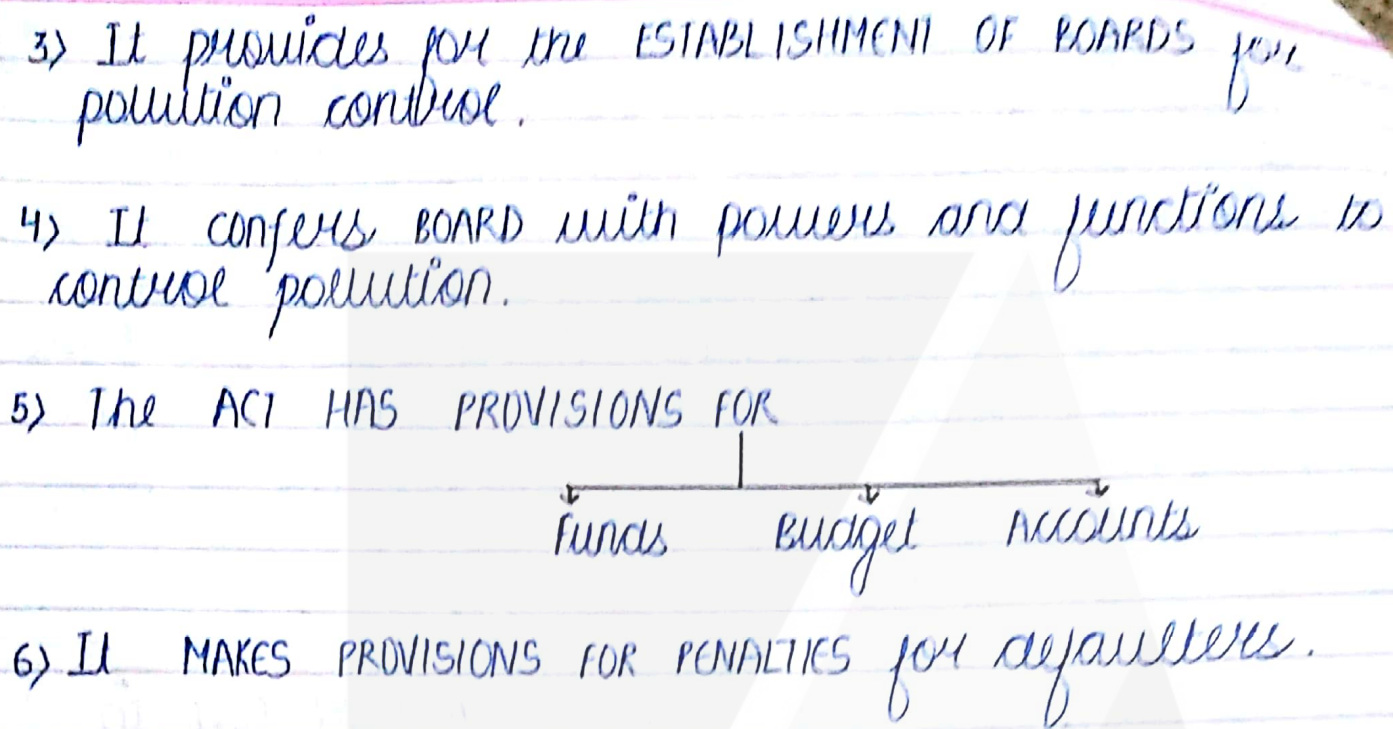 3) It provides for the ESTABLISHMENT OF BOARDS for
pollution control.
4) It confers BOARD with powers and functions to
control pollution.
5) The ACT HAS PROVISIONS FOR
Funds Budget Accounts
6) It MAKES PROVISIONS FOR PENALTIES for defaulters.